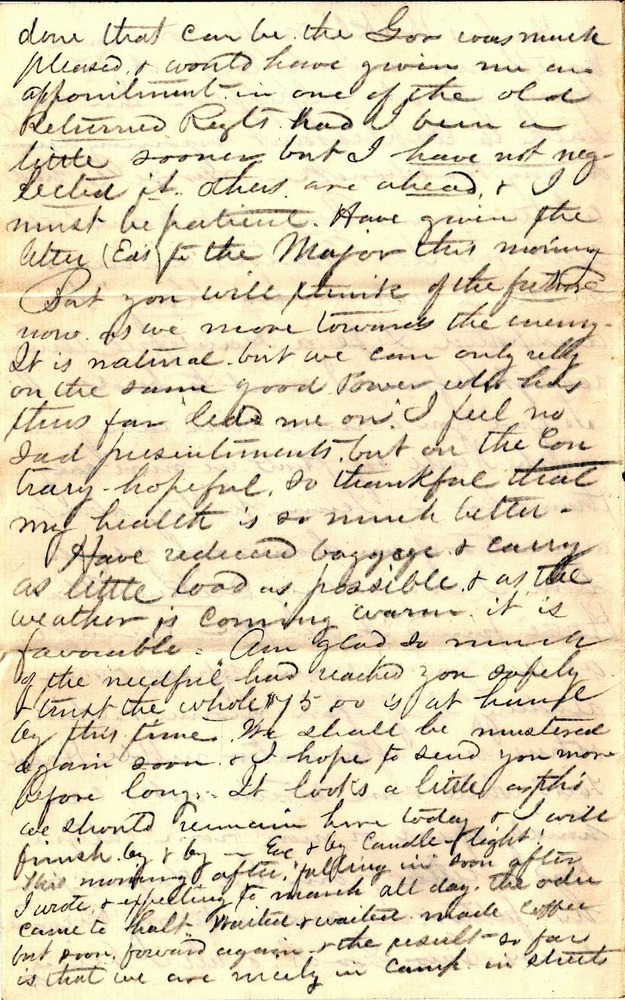 done that can be. the Gov was much
pleased, & would have given me an
appointment in one of the old
Returned Regts had I been a
little sooner but I have not neg-
lected it. others are ahead, & I
must be patient. Have given the
letter (Eds) to the Major this morning
But you will think of the future
now as we move towards the enemy.
It is natural but we can only rely
on the same good Power who has
thus far "led me on". I feel no
sad presentiments, but on the Con
trary - hopeful, so thankful that
my health is so much better -
Have reduced baggage & carry
as little load as possible, & as the
weather is coming warm it is
favourable - Am glad so much
of the "needful" had reached you safely
& trust the whole $75 00 is at hand
by this time. We shall be mustered
again soon & I hope to send you more
before long. It looks a little as tho'
we should remain here today & I will
finish by & by - Eve & by Candle-light!
This morning after "falling in" soon after
I wrote, & expecting to march all day. the order
came to halt. Waited & waited. made coffee
but soon forward again & the result so far
is that we are nicely in camp in streets